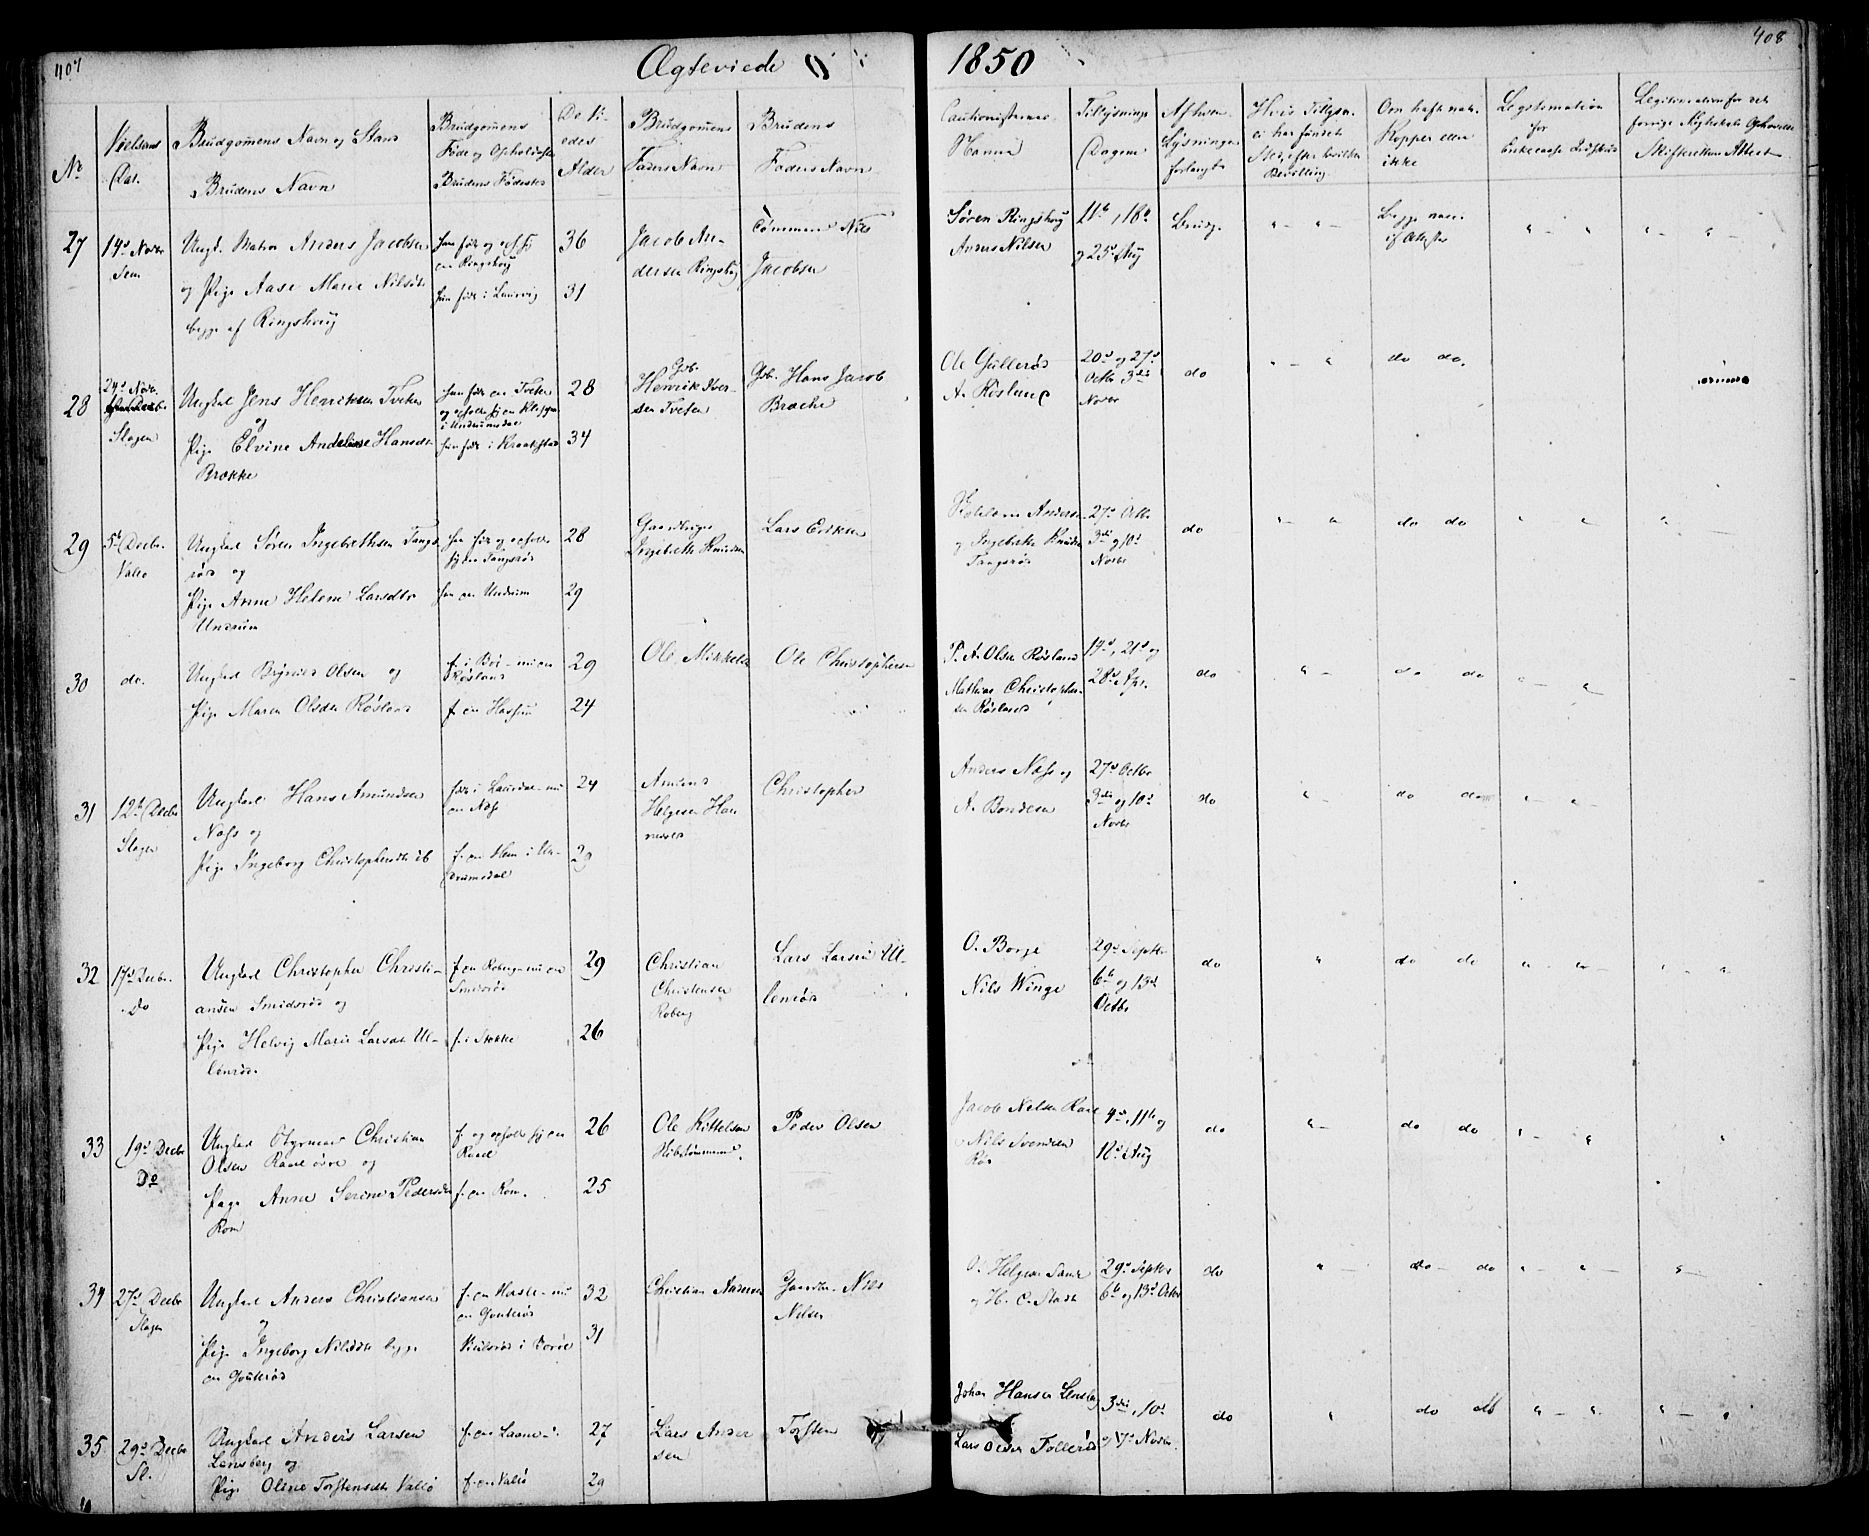 407
Ægteviede
1850
408
No
Vielsens Dat.
Brudgomens Navn og Stand
Brudens Navn
Brudgomens
Føde og Opholdssted
Brudens Fødested
De Vi-
edes
Alder
Brudgomens
Faders Navn
Brudens
Faders Navn
Cautionisternes
Navne
Tillysnings
Dagene
Af hvem
Lysningen
forlangt
Hvis Tillysn.
ei har fundet
Sted, efter hvilken
Bevilling
Om havt nat.
Kopper eller
ikke
Legitimation
for
Legitimation for det
forrige Ægteskabs Ophævelse
Skifterettens Attest
27
14d Novbr
Sem
Ungk. Matros Anders Jacobsen
og Pige Aase Marie Nilsdtr
begge af Ringshoug
han født i Laurvig
36
31
Jacob An-
dersen Ringshoug
Tømmermd Nils
Jacobsen
Søren Ringshoug
Anders Nilsen
11te, 18de
og 25d Aug
Brudg.
Begge nat.
if Attester
28
24d Novb.
Slagen
Ungkarl Jens Henriksen Tveten
og
Pige Elvine Andelane Hansdtr
Brække
28
34
Gb.
Henrik Iver-
sen Tveten
Gb. Hans Jacob
Bræche
Ole Gullerød
A. Røsland
20d og 27d
Octbr 3die
Novbr
do
do do.
29
5te Decbr.
Vallø
Ungkarl Søren Ingebrethsen Fangs-
rød og
Pige Anne Helene Larsdtr
Undrum
han født og opholder
sig en Fangsrød
fra en Undrum
28
29
Gaardbruger
Ingebreth Knudsen
Lars Eriksen
og Ingebreth Knudsen
Fangsrød
27d Octbr
3die og 10d
Novbr
do
do do
30
do.
Ungkarl Brynild Olsen og
Pige Maren Olsdtr Røsland
f. i Bøe - nu en
Røsland
f. en Hassum
29
24
Ole Mikkelsen
Ole Christophersen
P. A. Olsen Røsland
Mathias Christopher-
sen Røsland
14d, 21d og
28d Apr.
do
do do
31
12te Decbr
Slagen
Ungkarl Hans Amundsen
Næss og
Pige Ingeborg Christophersdtr ib
født i Laurdal - nu
en Næss
f. en Hem i Un-
drumsdal
24
29
Amund
Helgesen
Christopher
Anders Næss og
A. Bondesen
27d Octbr
3die og 10d
Novbr
do
do do
32
17d Decbr.
Do
Ungkarl Christopher Christi-
ansen Smidsrød og
Pige Helvig Marie Larsdtr Ul-
lenrød
f. en Roberg - nu en
Smidsrød
f. i Stokke
29
26
Christian
Christensen
Roberg
Lars Larsen Ul-
lenrød
O. Borge
Nils Winge
29d Septbr
6te og 13d
Octbr
do
do do
33
19d Decbr
Do
Ungkarl Styrmand Christian
Olsen Raael øvre og
Pige Anne Serine Pedersdtr
Rom
f. og opholder sig en
Raael
f. en Rom.
26
25
Ole Kittelsen
Peder Olsen
Jacob Nilsen Rael
Nils Svendsen
Røs
4de, 11te og
18d Aug
do
do do
34
27d Decbr
Slagen
Ungkarl Anders Christiansen
og
Pige Ingeborg Nilsdtr begge
en Gouterød
f. en Hasle - nu
en Gouterød
32
31
Christian Andersen
Gaardbr. Nils
Nilsen
O. Helgesen Sande
og H. C. Stadt
29d Septbr
6te og 13d Octbr
do
do do
35
29d Decbr
Sl.
Ungkarl Anders Larsen
Lensberg og
Pige Oline Torstensdtr Vallø
f. en Vallø
27
29
Lars Ander
sen
Torsten
Johan Hansen Lensberg
Lars Olsen Tollerød
3die, 10d
og 17d Novbr.
do
do do